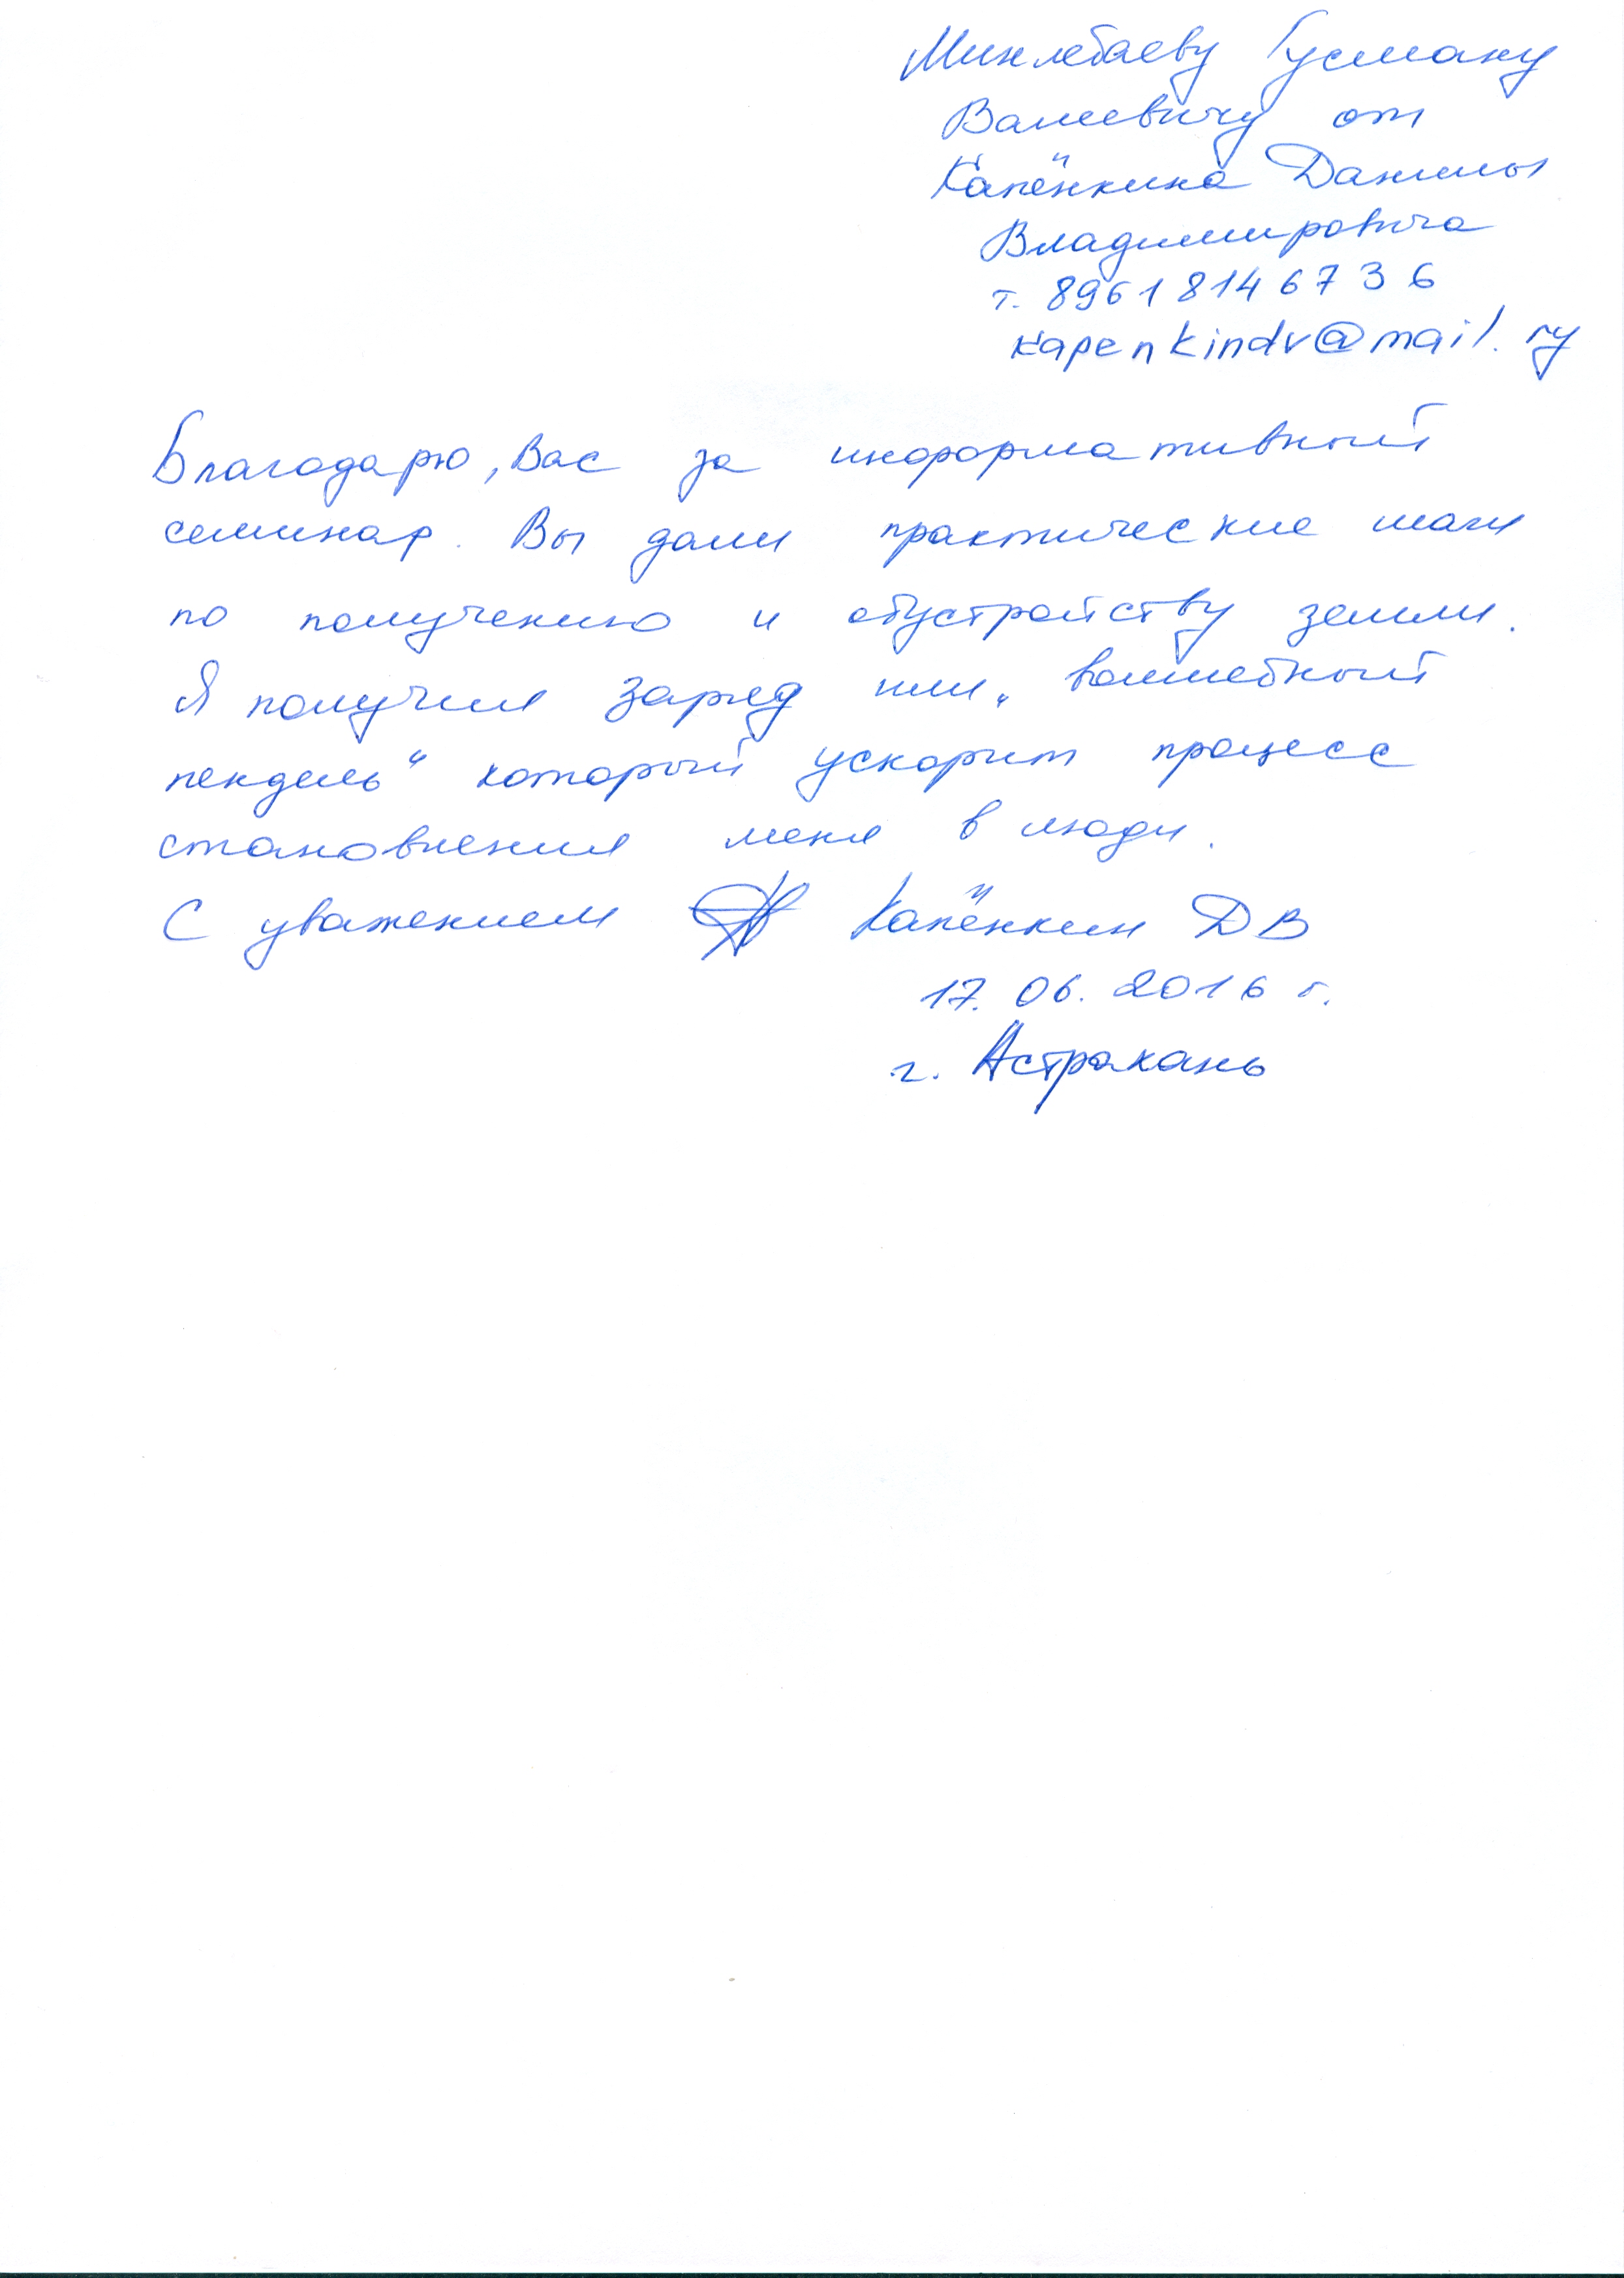 Минлебаеву Гусману
Валиевичу от
Капёнкина Данилы
Владимировича
т. 89618146736
kapenkindv@mail.ry
Благодарю, Вас за информативный
семинар. Вы дали практические шаги
по получению и обустройству земли.
Я получил заряд или „волшебный
пендель“ который ускорит процесс
становления меня в люди.
С уважением Капёнкин ДВ
17.06.2016 г.
г. Астрахань